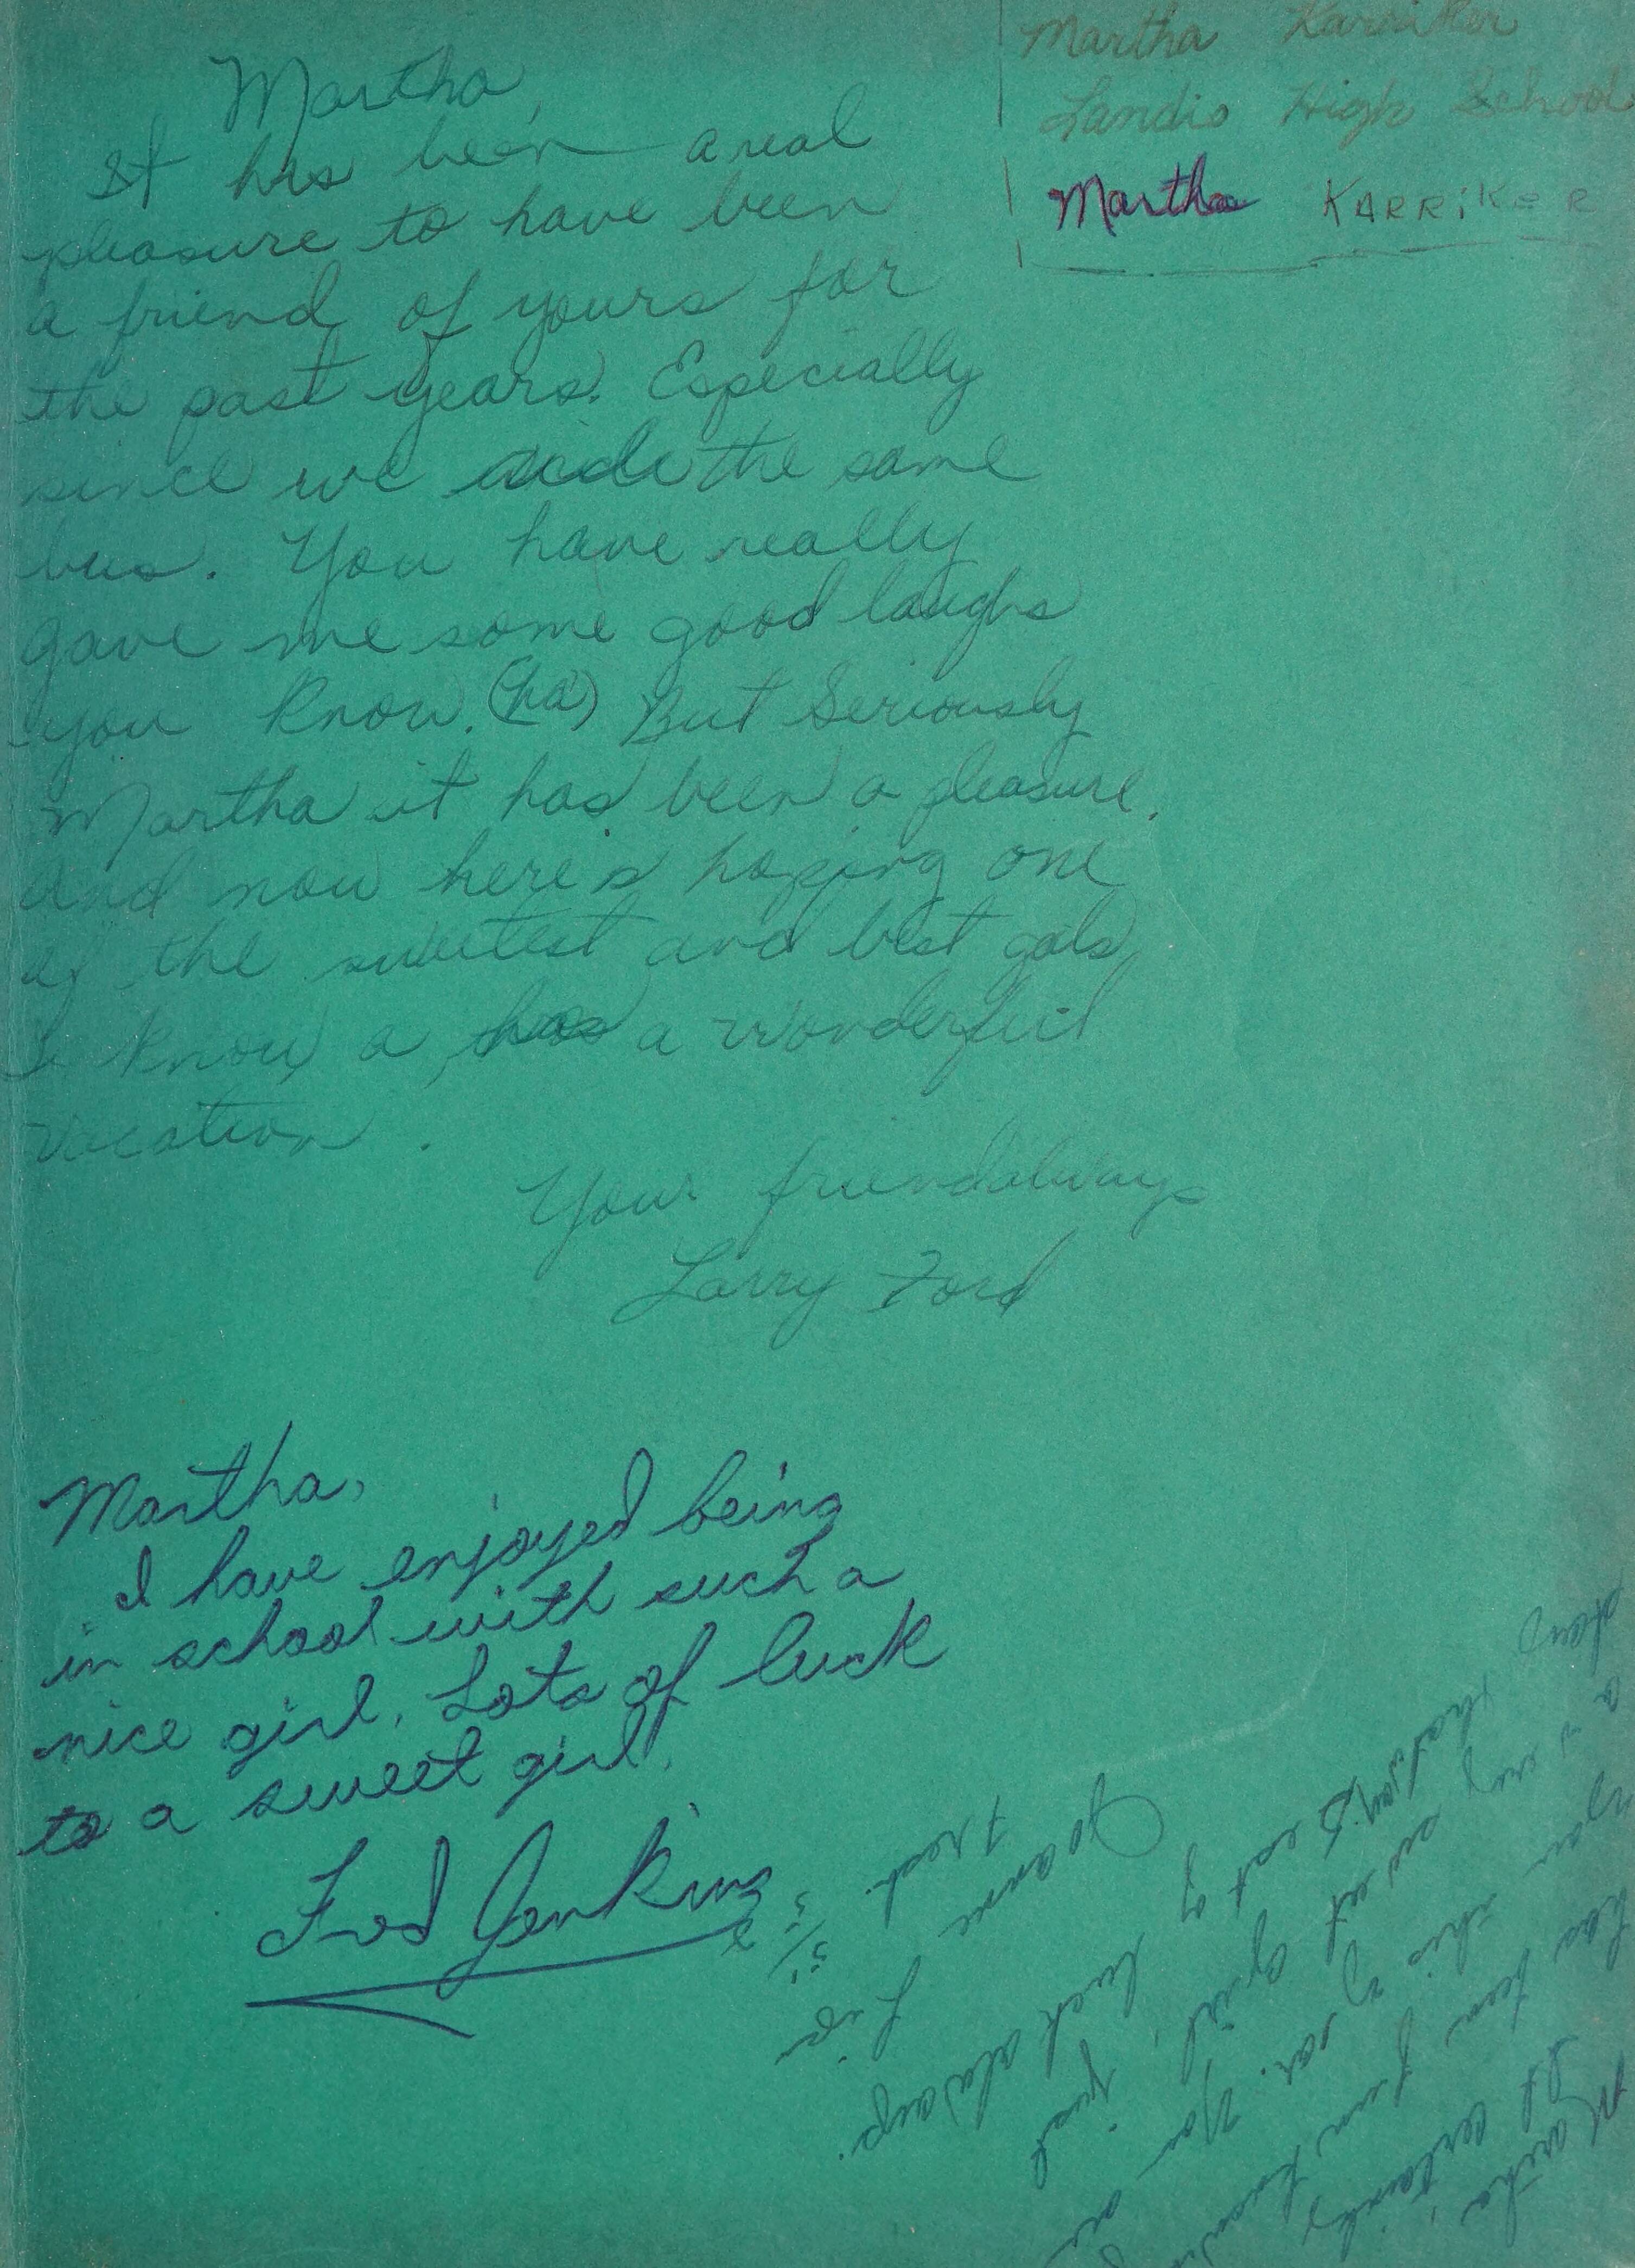 Martha Karriker
Landis High School
Martha KARRiKER
Martha,
It has been a real
pleasure to have been
a friend of yours for
the past years. Especially
since we ride the same
bus. You have really
gave me some good laughs
you know. (ha) But Seriously
Martha it has been a pleasure.
And now here's hoping one
of the sweetest and best gals
I know a has a wonderful
vacation.
Your friend always
Larry Ford
Martha,
I have enjoyed being
in school with such a
nice girl. Lots of luck
to a sweet girl.
Fred Jenkins
Martha,
It certainly
has been fun
you this year. You
a sweet girl, and
that way
best of luck always.
Jo anne